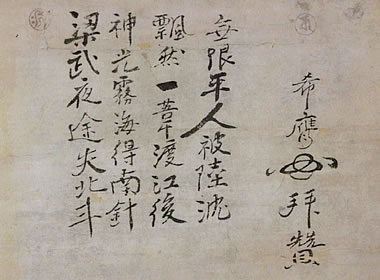 梁武夜途失北斗
神光霧海得南針
飄然一葦渡江後
無限平人被陸沈
希膺 拜賛